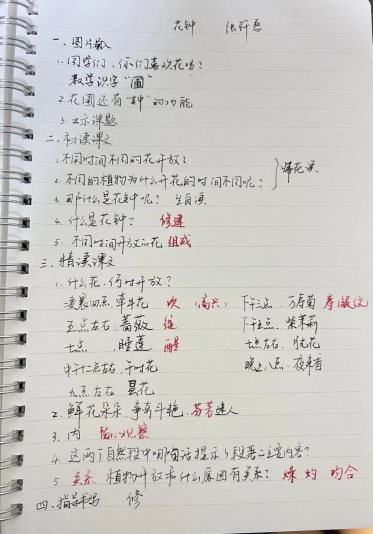 花钟 张
一、图片
1. 同学们，你们喜欢花吗？
教学识字"圃"
2. 花圃还有"钟"的功能
3. 出示课题
二、初读课文
1. 不同时间不同的花开放了
2. 不同的植物为什么开花的时间不同呢？ 读
3. 那什么是花钟呢？ 生自读
4. 什么是花钟？ 修建
5. 不同时间开放的花 组成
三、精读课文
1. 什么花，何时开放？
凌晨四点 牵牛花 吹 （高兴） 下午三点 万寿菊
五点左右 蔷薇 绽 下午五点 紫茉莉
七点 睡莲 醒 七点左右 月光花
中午十二点左右 午时花 晚上八点 夜来香
九点左右 昙花
2. 鲜花朵朵，争奇斗艳，芬芳迷人
3. 内 观察
4. 这两个自然段中哪句话提示了段落的主要内容？
5. 关系 植物开放和什么原因有关系？ 燥 灼 吻合
四、指导书写 修